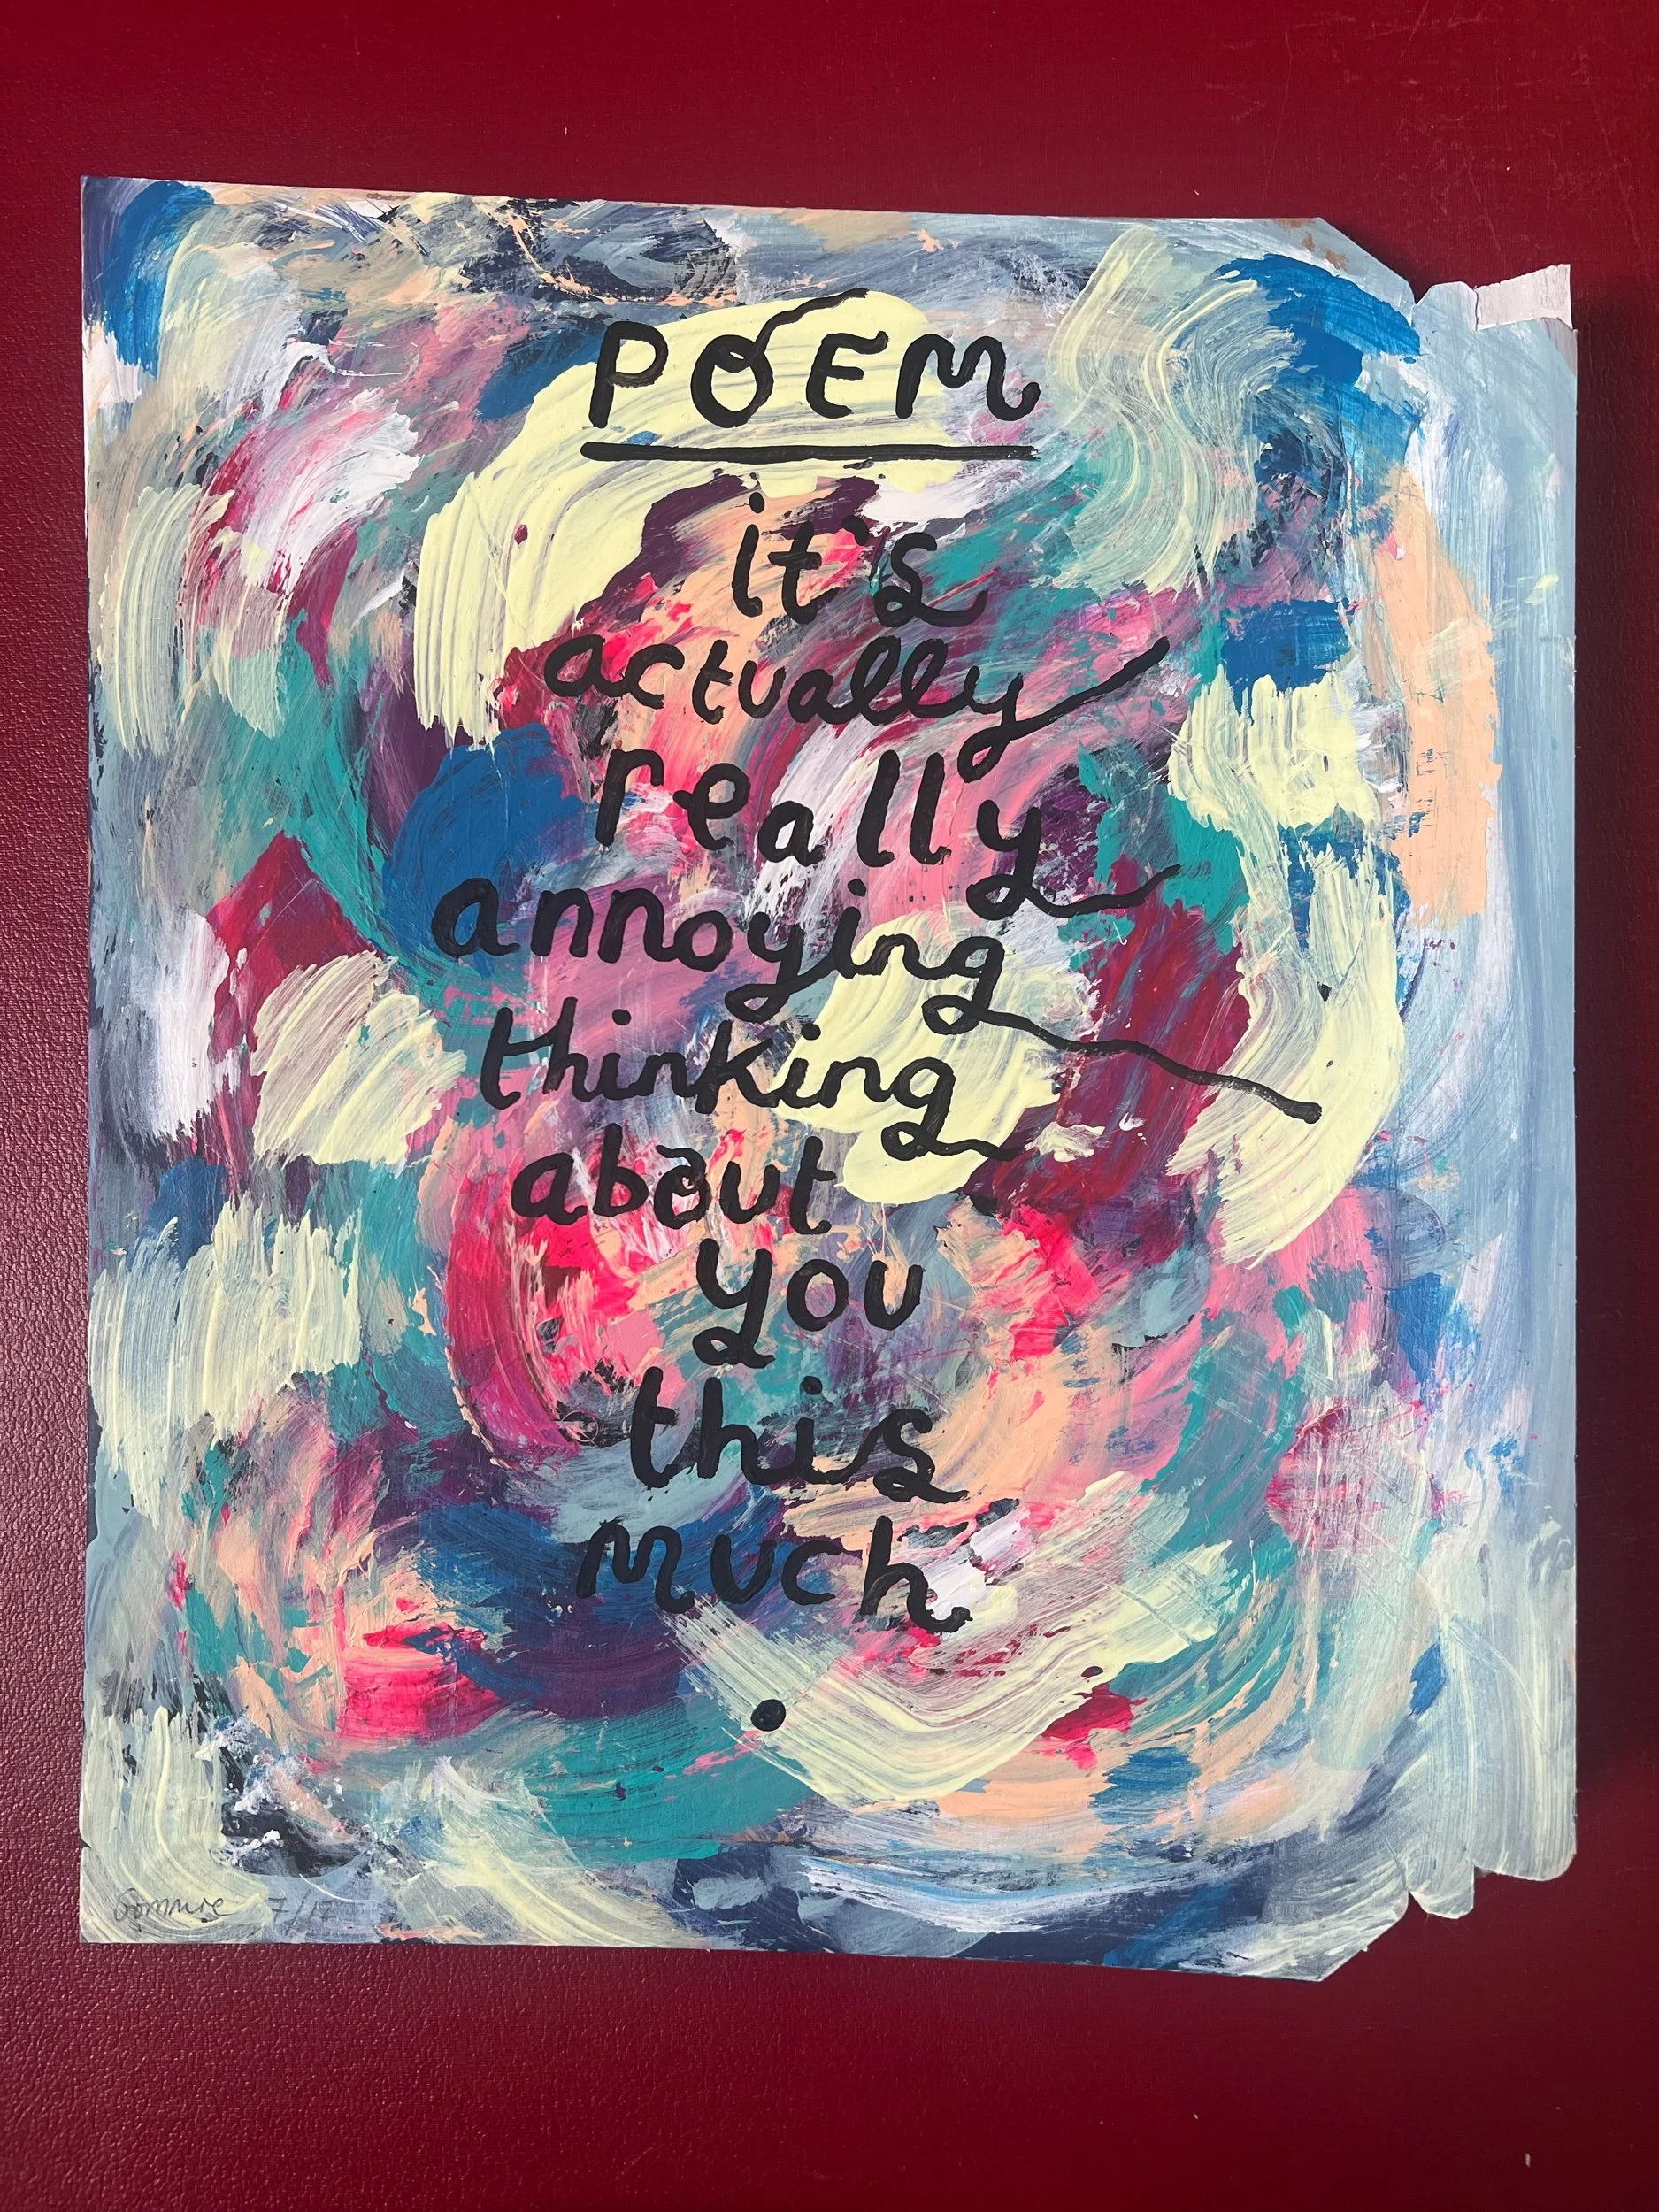 POEM
it's
actually
really
annoying
thinking
about
you
this
much
.
Gommie 7/17